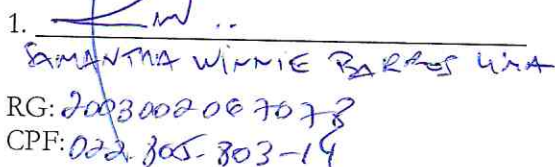 1.
SAMANTHA WINNIE BARROS LIMA
RG: 2003002067078
CPF: 022.805.803-14